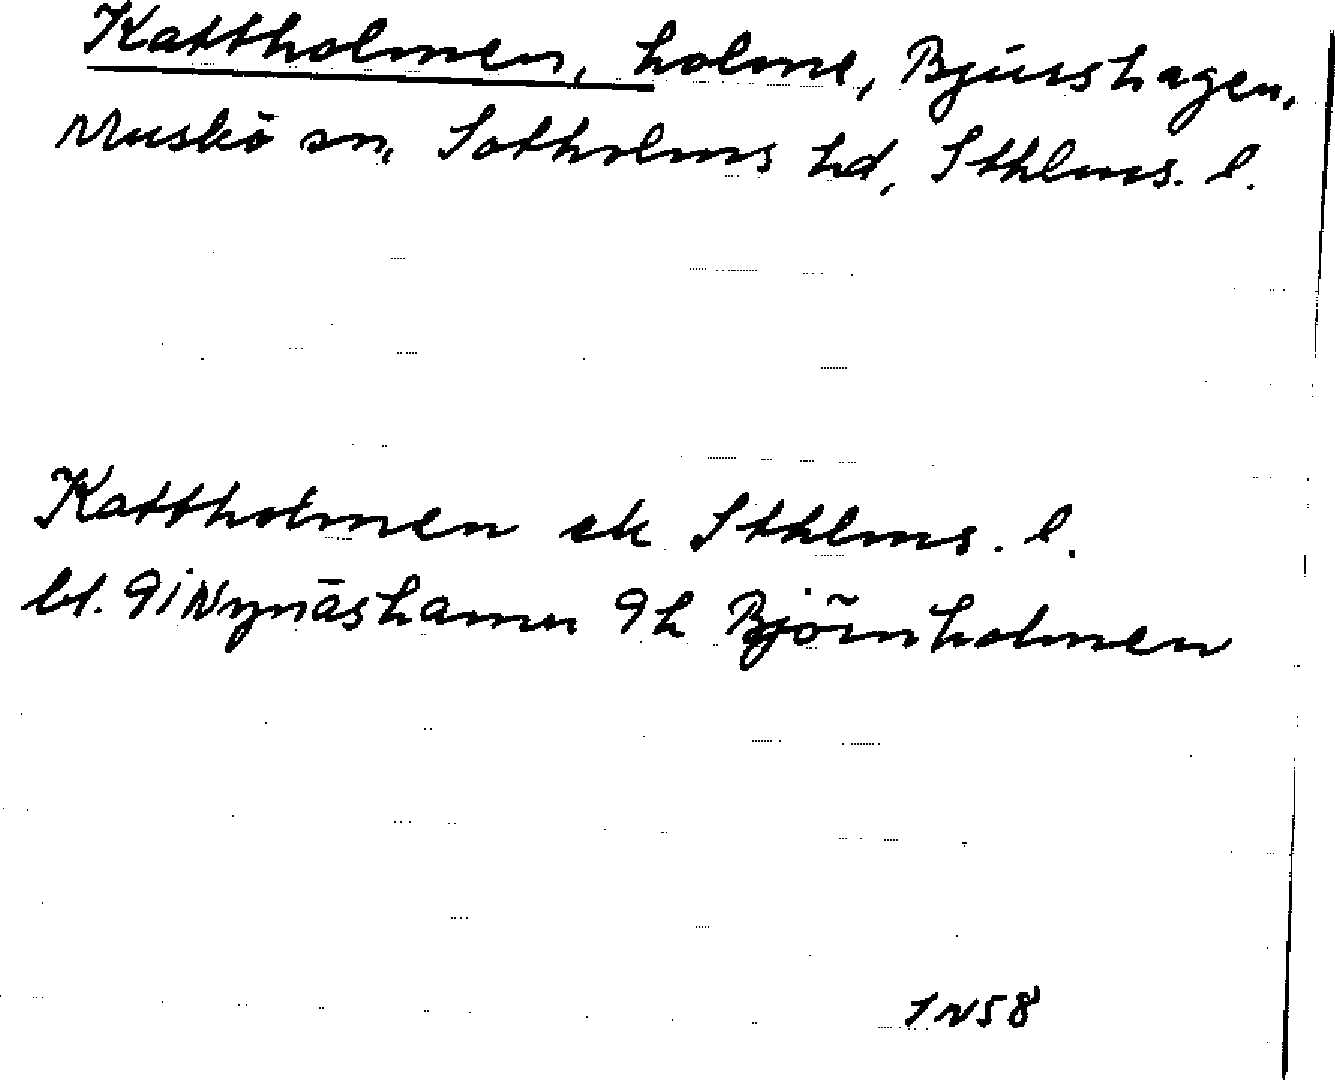 Kattholmen, holme, Bjurshagen,
Muskö sn, Sotholms hd, Sthlms. l.
Kattholmen ek Sthlms. l.
bl. 9i Nynäshamn 9h Björnholmen
IN58